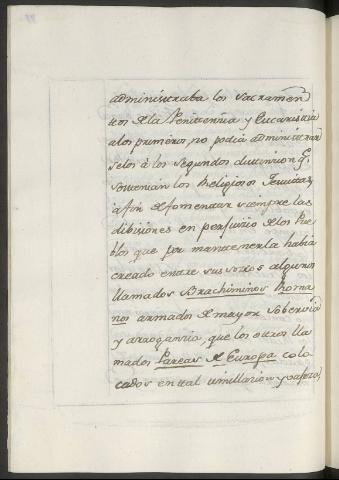 administraba los Sacramen
tos de la Penitencia y Eucaristia
a los primeros, no podia administrar
selos à los segundos distincion q.^e
sostenian los Religiosos Jesuitas
à fin de fomentar siempre las
dibisiones en perjuicio de los Pue
blos que por mantenerla habia
creado entre sus votos algunos
llamados Brachiminos Roma
nos armados de mayor sobervia
y arrogancia, que los otros lla
mados Pareas de Europa colo
cados en tal umillacion y